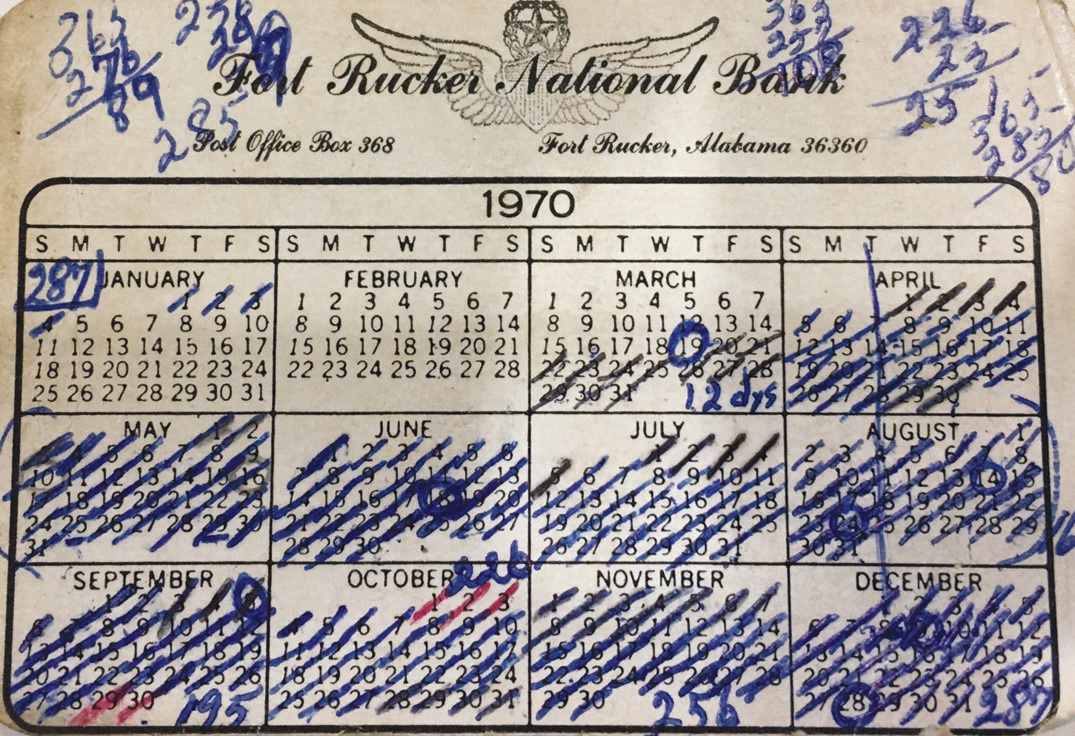 89
285
Fort Rucker National Bank
Post Office Box 368 Fort Rucker, Alabama 36360
1970
S M T W T F S S M T W T F S S M T W T F S S M T W T F S
287
JANUARY
1 2 3
4 5 6 7 8 9 10
11 12 13 14 15 16 17
18 19 20 21 22 23 24
25 26 27 28 29 30 31
FEBRUARY
1 2 3 4 5 6 7
8 9 10 11 12 13 14
15 16 17 18 19 20 21
22 23 24 25 26 27 28
MARCH
1 2 3 4 5 6 7
8 9 10 11 12 13 14
15 16 17 18 19 20 21
22 23 24 25 26 27 28
29 30 31
12 dys
APRIL
1 2 3 4
5 6 7 8 9 10 11
12 13 14 15 16 17 18
19 20 21 22 23 24 25
26 27 28 29 30
MAY
1 2
3 4 5 6 7 8 9
10 11 12 13 14 15 16
17 18 19 20 21 22 23
24 25 26 27 28 29 30
31
JUNE
1 2 3 4 5 6
7 8 9 10 11 12 13
14 15 16 17 18 19 20
21 22 23 24 25 26 27
28 29 30
JULY
1 2 3 4
5 6 7 8 9 10 11
12 13 14 15 16 17 18
19 20 21 22 23 24 25
26 27 28 29 30 31
AUGUST
1
2 3 4 5 6 7 8
9 10 11 12 13 14 15
16 17 18 19 20 21 22
23 24 25 26 27 28 29
30 31
SEPTEMBER
1 2 3 4 5
6 7 8 9 10 11 12
13 14 15 16 17 18 19
20 21 22 23 24 25 26
27 28 29 30
195
OCTOBER 226
1 2 3
4 5 6 7 8 9 10
11 12 13 14 15 16 17
18 19 20 21 22 23 24
25 26 27 28 29 30 31
NOVEMBER
1 2 3 4 5 6 7
8 9 10 11 12 13 14
15 16 17 18 19 20 21
22 23 24 25 26 27 28
29 30
256
DECEMBER
1 2 3 4 5
6 7 8 9 10 11 12
13 14 15 16 17 18 19
20 21 22 23 24 25 26
27 28 29 30 31
287